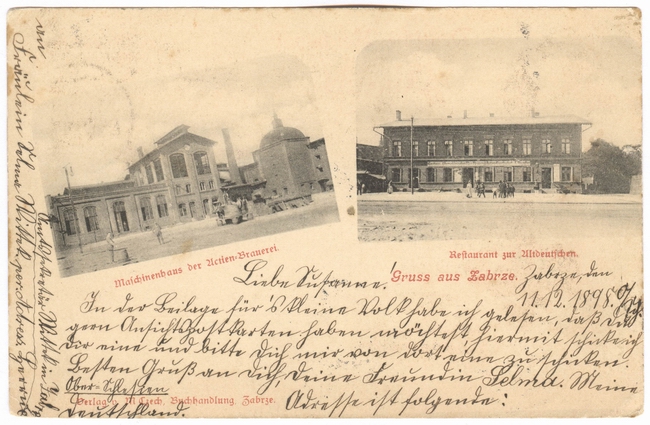 Maschinenhaus der Actien-Brauerei.
Restaurant zur Altdeutschen.
Gruss aus Zabrze.
Liebe Susanne!
Zabrze, den
11.12.1898.
In der Beilage für's kleine Volk habe ich gelesen, daß Du
gern Ansichtspostkarten haben möchtest, hiermit schicke ich
Dir eine und bitte Dich mir von dort eine zu schicken.
Besten Gruß an Dich, Deine Freundin Selma. Meine
Adresse ist folgende:
Ober-Schlesien
Deutschland.
Verlag v. M. Czech, Buchhandlung, Zabrze.
an
Fräulein Selma Wittek per Adress